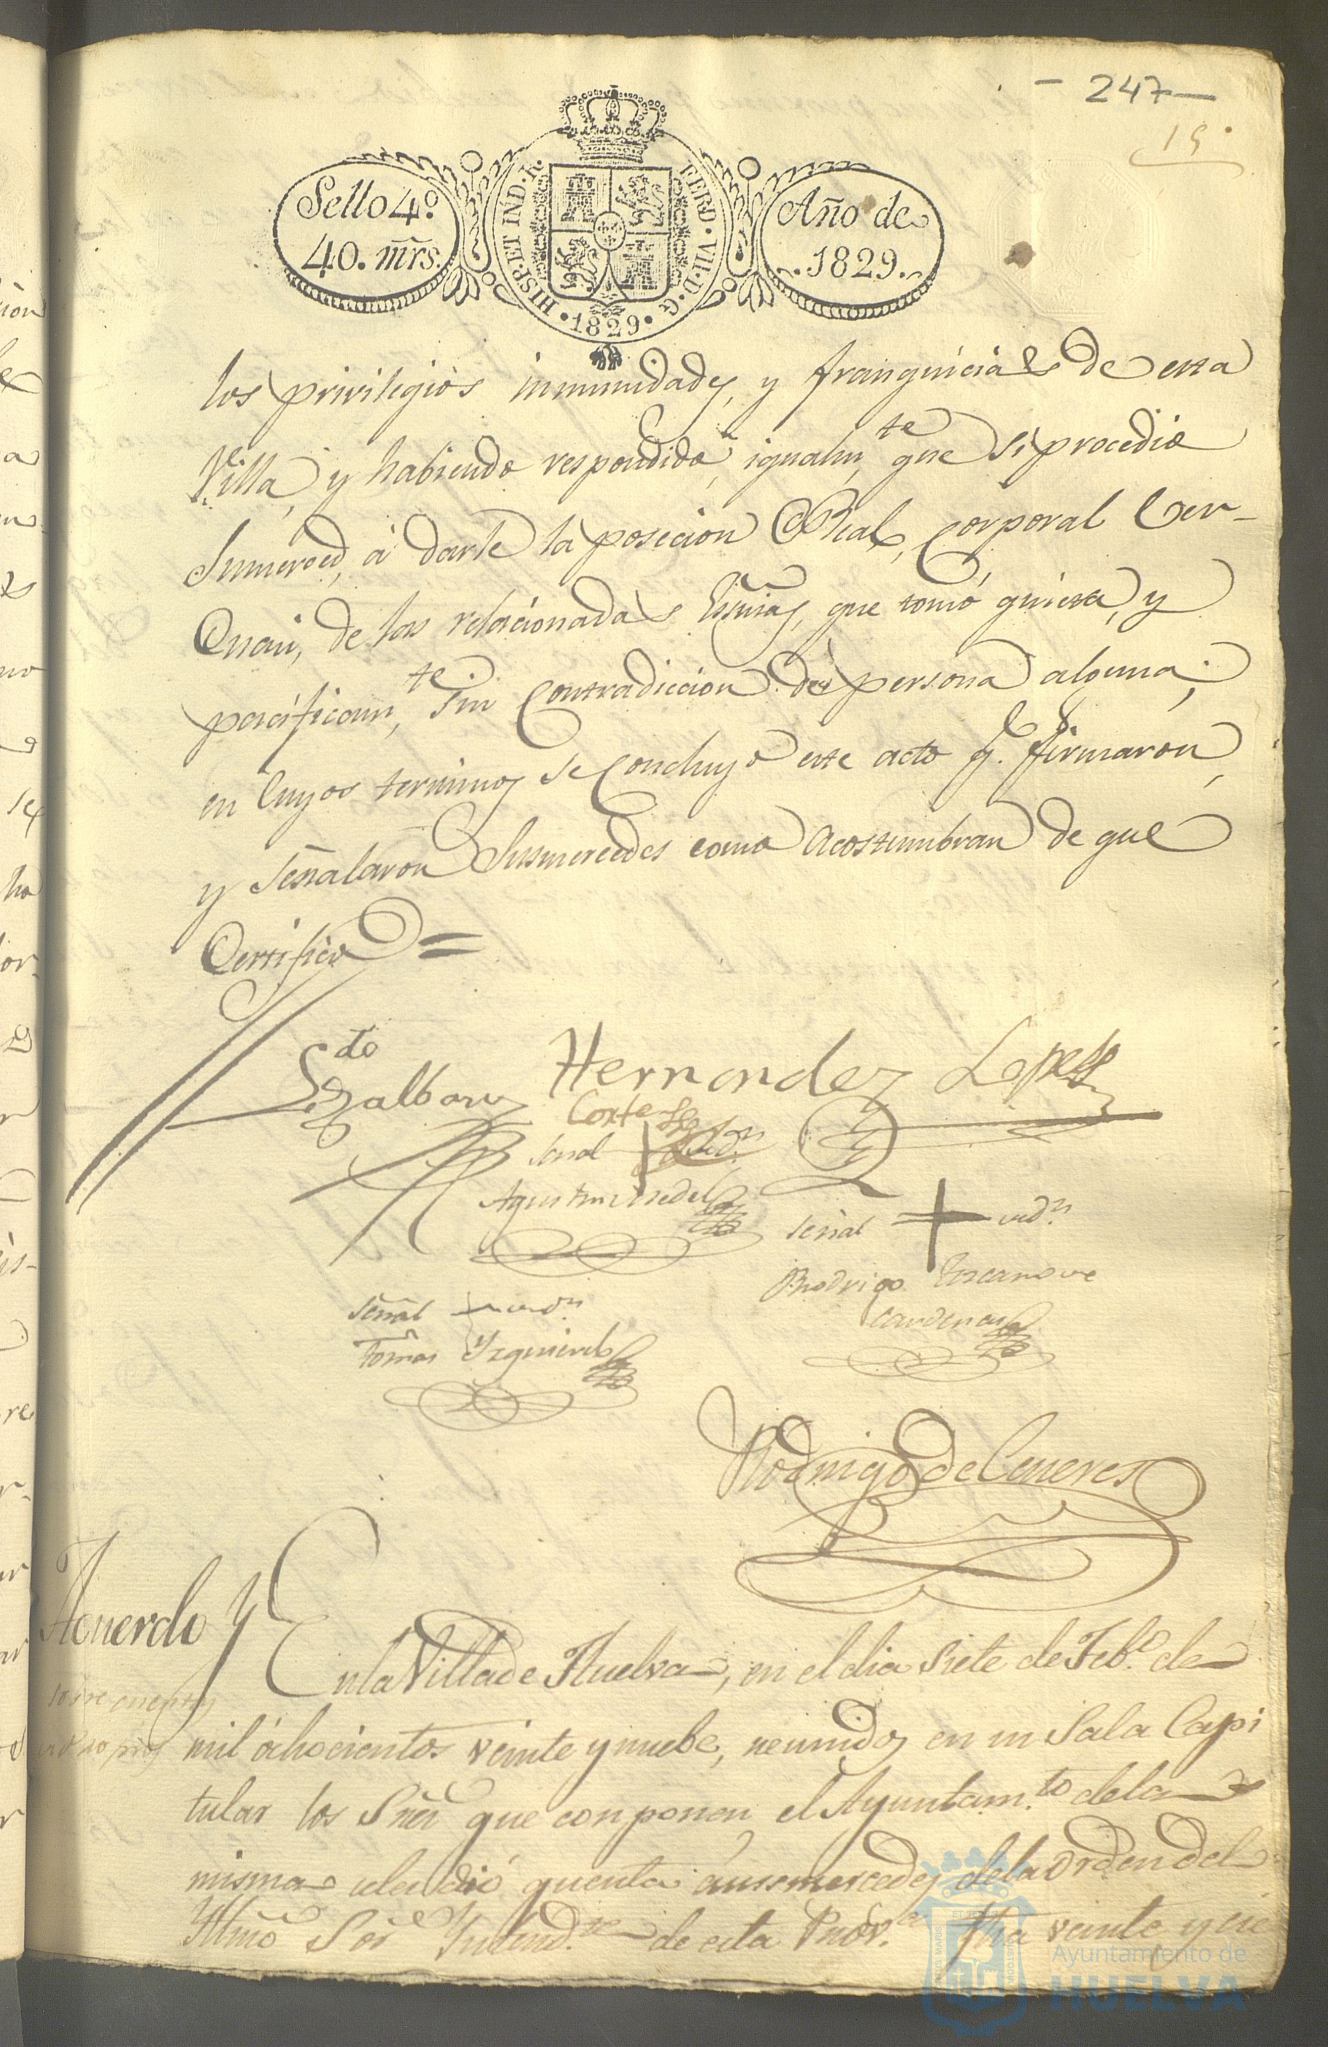 - 247 -
19
Sello 4º
40. mrs.
HISP. ET IND. R.
FERD. VII. D. G.
1829
Año de
1829.
los privilegios inmunidades, y franquicias de esta
Villa, y habiendo respondido, igualmte que si, procedio
Sumerced, á darle la posecion Real, corporal ver-
Quasi, de las relacionadas que tomó quieta, y
pacificamte, sin contradiccion de persona alguna;
en cuyos terminos se concluyó este acto q. firmaron,
y señalaron Susmercedes como acostumbran de que
Certifico =
Hernandez Lopez
Cortes
señal + de dn
Agustin
señal + de dn
Rodrigo
Cardenas
señal + de dn
Tomas Yzquierdo
Rodrigo de Ceneres
Acuerdo y
En la Villa de Huelva, en el dia siete de Febo. de
mil ochocientos veinte y nuebe, reunidos en su Sala Capi
tular los Sres. que conponen el Ayuntamto. de la
misma se dió quenta á susmercedes de la orden del
Yllmo Sor. Yntendte. de esta Prova. fha veinte y
Ayuntamiento de
HUELVA